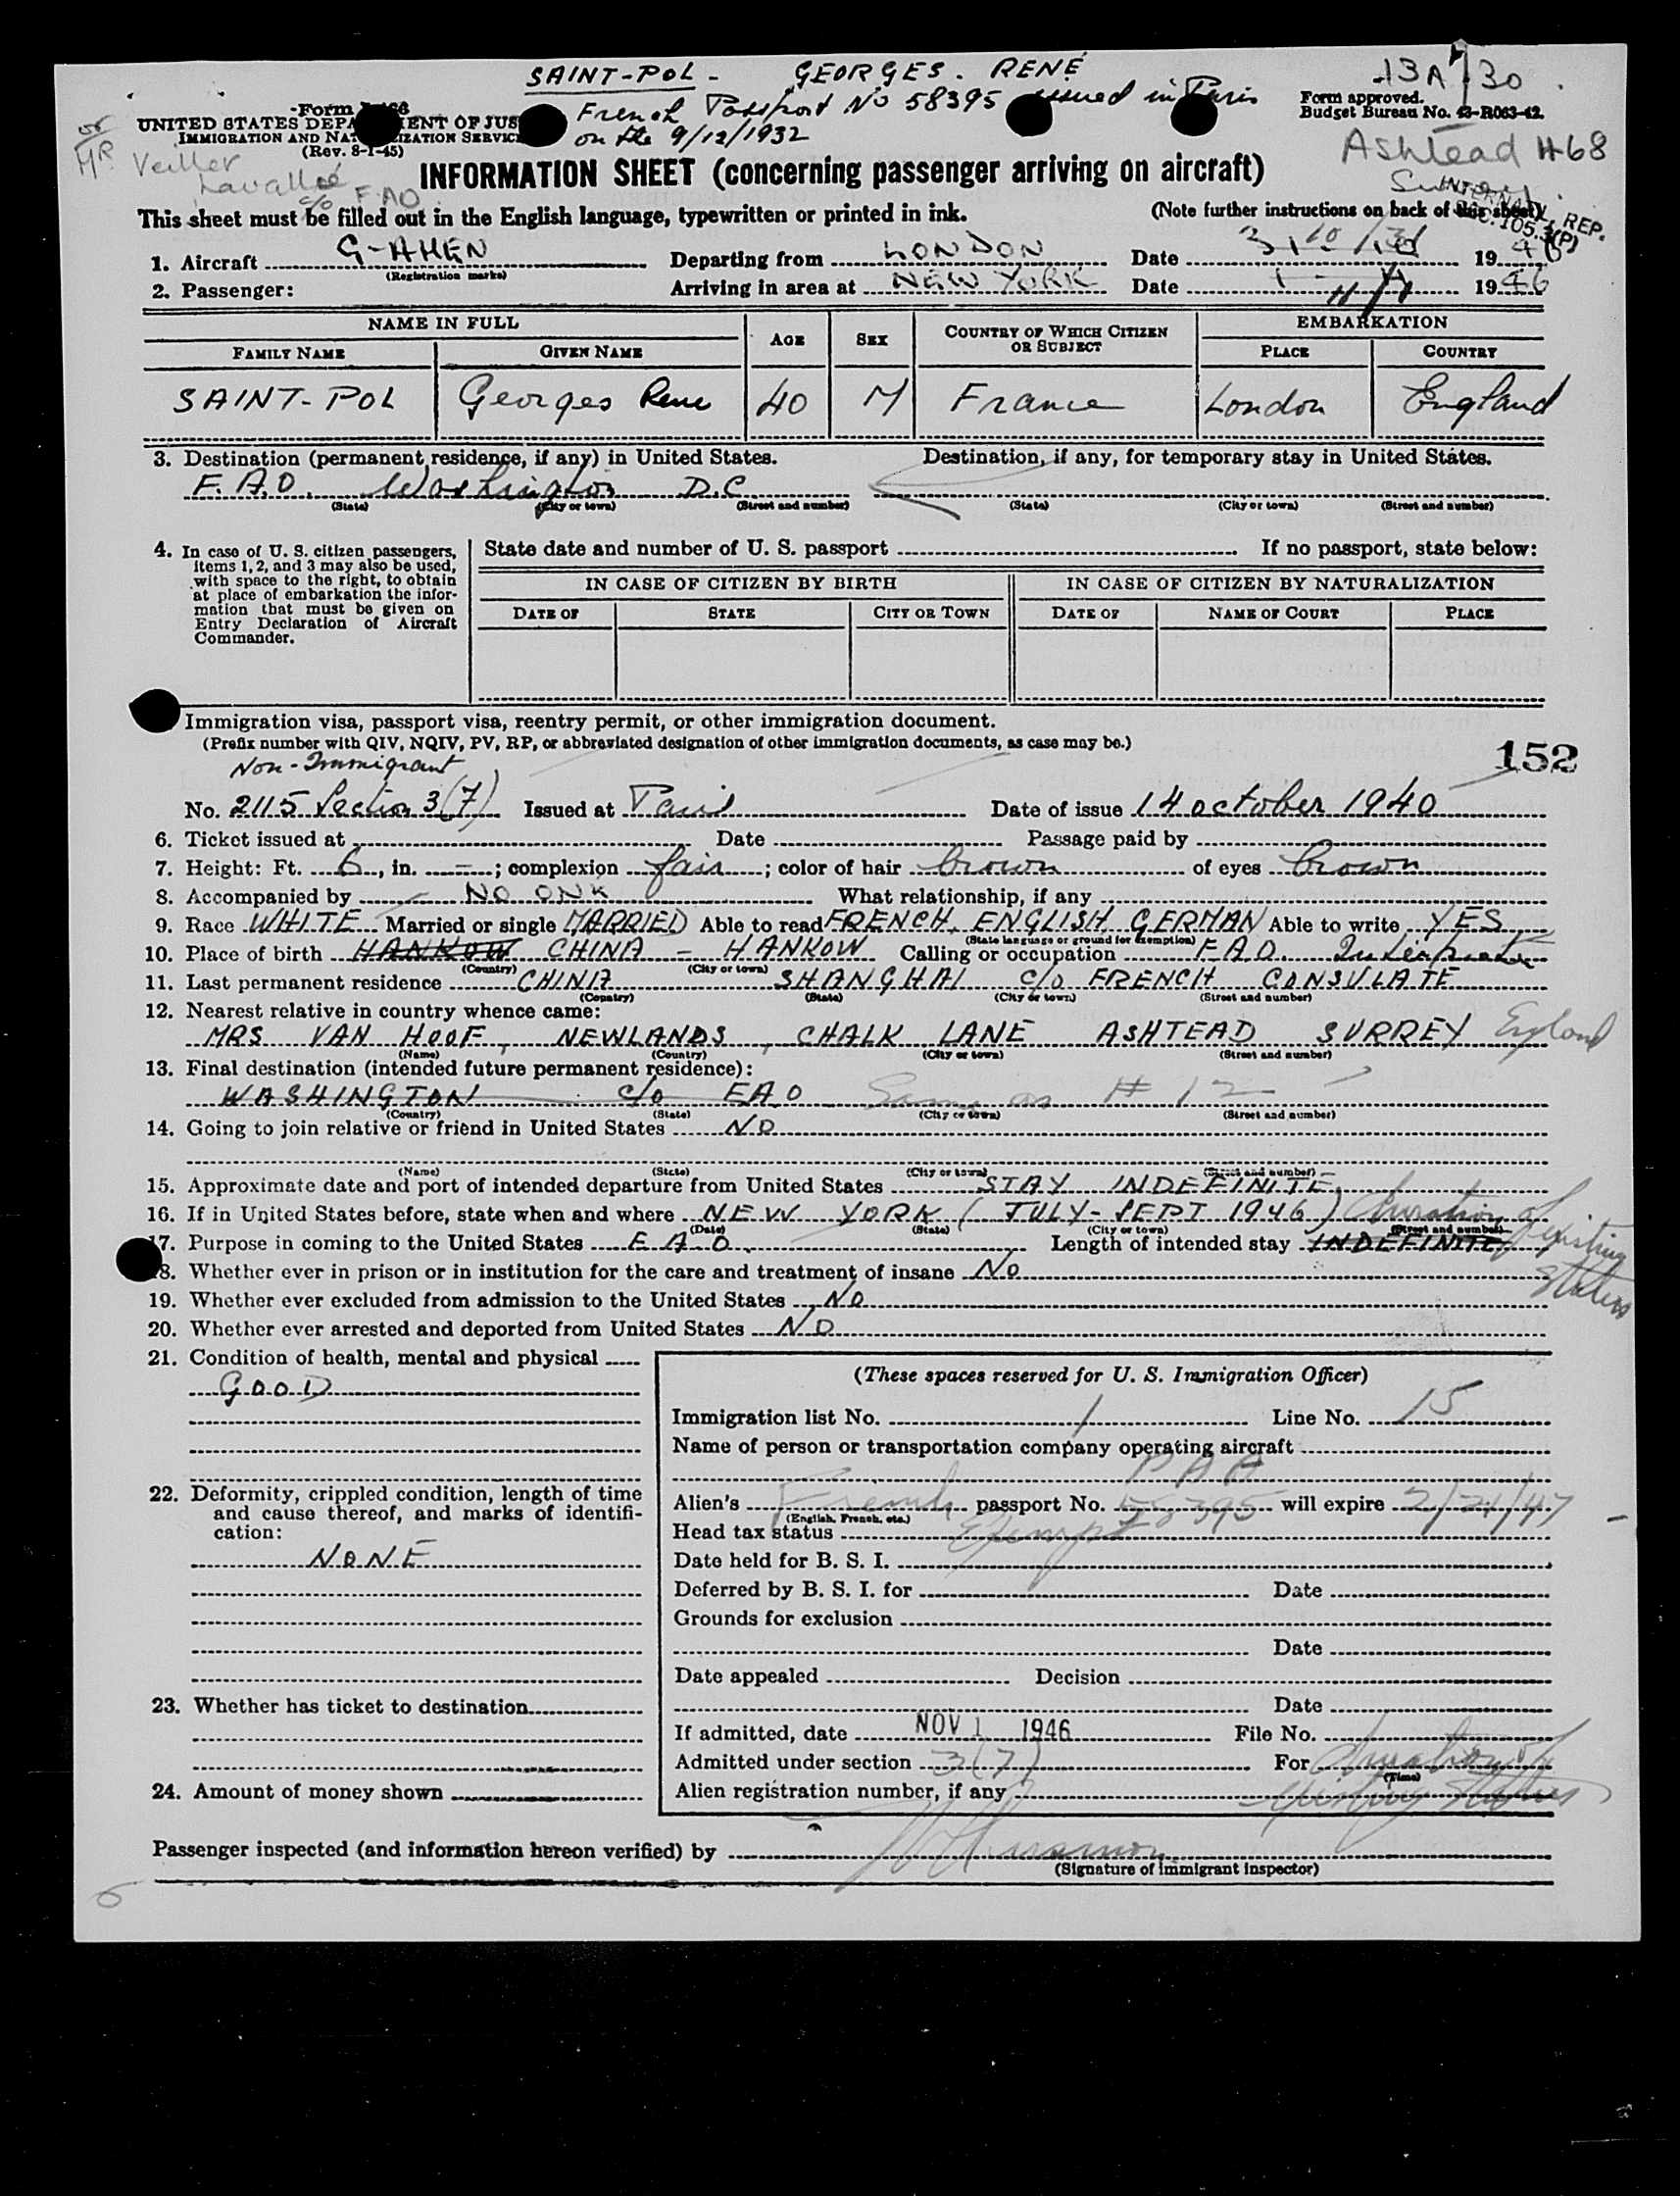 SAINT-POL - GEORGES. RENÉ
13A 30
French Passport No 58395 issued in Paris
on the 9/12/1932
Form
UNITED STATES DEPA ENT OF JUS
IMMIGRATION AND NAT IZATION SERVIC
(Rev. 8-1-45)
Form approved.
Budget Bureau No. 43-R063-42.
or
MR Veiller
Lavallée
c/o F.AO.
Ashtead #68
INTERNATL. REP.
SEC. 105.3(P)
INFORMATION SHEET (concerning passenger arriving on aircraft)
This sheet must be filled out in the English language, typewritten or printed in ink.
(Note further instructions on back of this sheet)
1. Aircraft G-AHEN Departing from LONDON Date 31 10 1946
(Registration marks)
2. Passenger: Arriving in area at NEW YORK Date 1 11 1946
NAME IN FULL AGE SEX COUNTRY OF WHICH CITIZEN OR SUBJECT EMBARKATION
FAMILY NAME GIVEN NAME PLACE COUNTRY
SAINT-POL Georges Rene 40 M France London England
3. Destination (permanent residence, if any) in United States. Destination, if any, for temporary stay in United States.
F.A.O. Washington D.C.
(State) (City or town) (Street and number) (State) (City or town) (Street and number)
4. In case of U. S. citizen passengers,
items 1, 2, and 3 may also be used,
with space to the right, to obtain
at place of embarkation the infor-
mation that must be given on
Entry Declaration of Aircraft
Commander.
State date and number of U. S. passport If no passport, state below:
IN CASE OF CITIZEN BY BIRTH IN CASE OF CITIZEN BY NATURALIZATION
DATE OF STATE CITY OR TOWN DATE OF NAME OF COURT PLACE
Immigration visa, passport visa, reentry permit, or other immigration document.
(Prefix number with QIV, NQIV, PV, RP, or abbreviated designation of other immigration documents, as case may be.)
152
Non-Immigrant
No. 2115 Section 3(7) Issued at Paris Date of issue 14 october 1940
6. Ticket issued at Date Passage paid by
7. Height: Ft. 6, in. -; complexion fair; color of hair brown of eyes brown
8. Accompanied by NO ONE What relationship, if any
9. Race WHITE Married or single MARRIED Able to read FRENCH, ENGLISH, GERMAN Able to write YES
(State language or ground for exemption)
10. Place of birth HANKOW CHINA - HANKOW Calling or occupation F.A.O. Interpreter
(Country) (City or town)
11. Last permanent residence CHINA SHANGHAI c/o FRENCH CONSULATE
(Country) (State) (City or town) (Street and number)
12. Nearest relative in country whence came:
MRS VAN HOOF, NEWLANDS, CHALK LANE ASHTEAD SURREY England
(Name) (Country) (City or town) (Street and number)
13. Final destination (intended future permanent residence):
WASHINGTON c/o FAO Same as # 12
(Country) (State) (City or town) (Street and number)
14. Going to join relative or friend in United States NO
(Name) (State) (City or town) (Street and number)
15. Approximate date and port of intended departure from United States STAY INDEFINITE
16. If in United States before, state when and where NEW YORK (JULY-SEPT 1946) duration of
(Date) (State) (City or town) (Street and number)
17. Purpose in coming to the United States F.A.O. Length of intended stay INDEFINITE existing
status
18. Whether ever in prison or in institution for the care and treatment of insane No
19. Whether ever excluded from admission to the United States NO
20. Whether ever arrested and deported from United States NO
21. Condition of health, mental and physical
GOOD
22. Deformity, crippled condition, length of time
and cause thereof, and marks of identifi-
cation:
NONE
23. Whether has ticket to destination
24. Amount of money shown
(These spaces reserved for U. S. Immigration Officer)
Immigration list No. 1 Line No. 15
Name of person or transportation company operating aircraft
PAA
Alien's French passport No. 58395 will expire 2/21/47
(English, French, etc.)
Head tax status Exempt
Date held for B. S. I.
Deferred by B. S. I. for Date
Grounds for exclusion
Date
Date appealed Decision
Date
If admitted, date NOV 1 1946 File No.
Admitted under section 3(7) For duration of
(Time)
Alien registration number, if any existing status
Passenger inspected (and information hereon verified) by
(Signature of immigrant inspector)
6